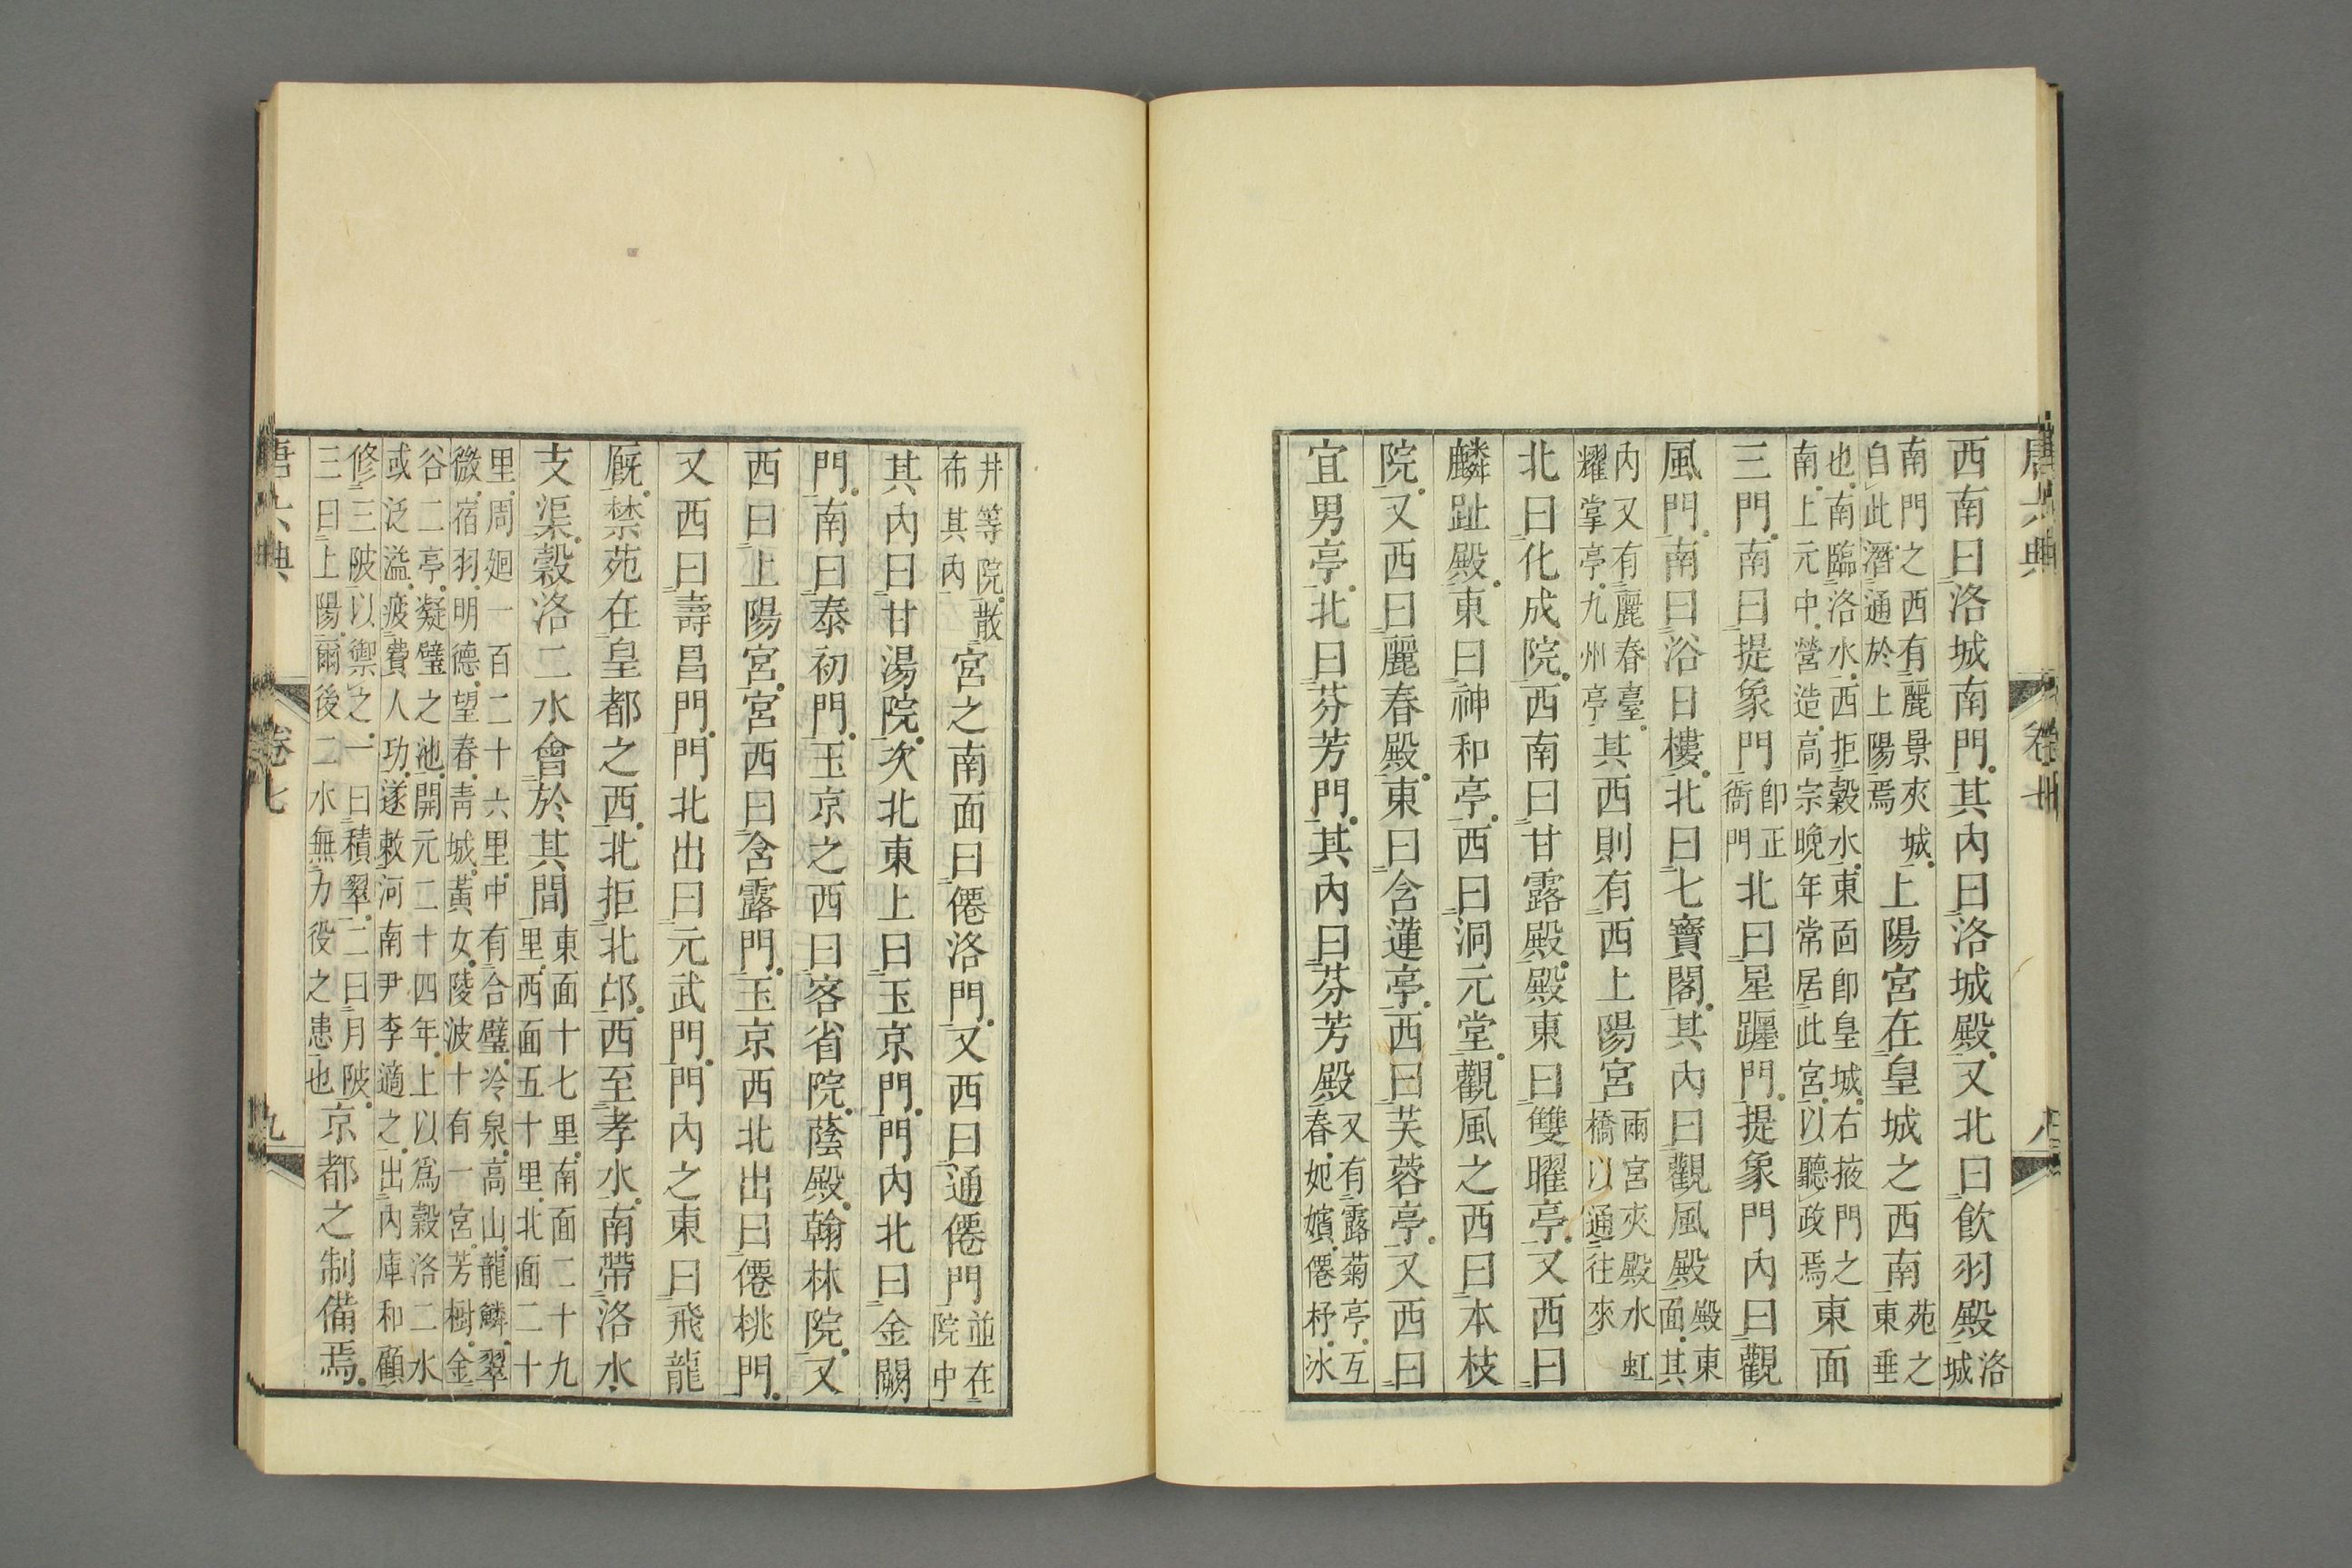 唐六典 卷七 八
西南曰洛城南門其內曰洛城殿又北曰飲羽殿洛城
南門之西有麗景夾城自此潛通於上陽焉上陽宮在皇城之西南苑之東垂
也南臨洛水西拒穀水東面即皇城右掖門之南上元中營造高宗晚年常居此宮以聽政焉東面
三門南曰提象門即正衙門北曰星躔門提象門內曰觀
風門南曰浴日樓北曰七寶閣其內曰觀風殿殿東面其
內又有麗春臺耀掌亭九州亭其西則有西上陽宮兩宮夾殿水虹橋以通往來
北曰化成院西南曰甘露殿殿東曰雙曜亭又西曰
麟趾殿東曰神和亭西曰洞元堂觀風之西曰本枝
院又西曰麗春殿東曰含蓮亭西曰芙蓉亭又西曰
宜男亭北曰芬芳門其內曰芬芳殿又有露菊亭互春妃嬪僊杼冰
井等院散布其內宮之南面曰僊洛門又西曰通僊門並在院中
其內曰甘湯院次北東上曰玉京門門內北曰金闕
門南曰泰初門玉京之西曰客省院蔭殿翰林院又
西曰上陽宮宮西曰含露門玉京西北出曰僊桃門
又西曰壽昌門門北出曰元武門門內之東曰飛龍
厩禁苑在皇都之西北拒北邙西至孝水南帶洛水
支渠穀洛二水會於其間東面十七里南面二十九里西面五十里北面二十
里周廻一百二十六里中有合璧冷泉高山龍鱗翠微宿羽明德望春青城黃女陵波十有一宮芳樹金
谷二亭凝璧之池開元二十四年上以爲穀洛二水或泛溢疲費人功遂敕河南尹李適之出內庫和顧
修三陂以禦之一曰積翠二曰月陂三曰上陽爾後二水無力役之患也京都之制備焉
唐六典 卷七 九